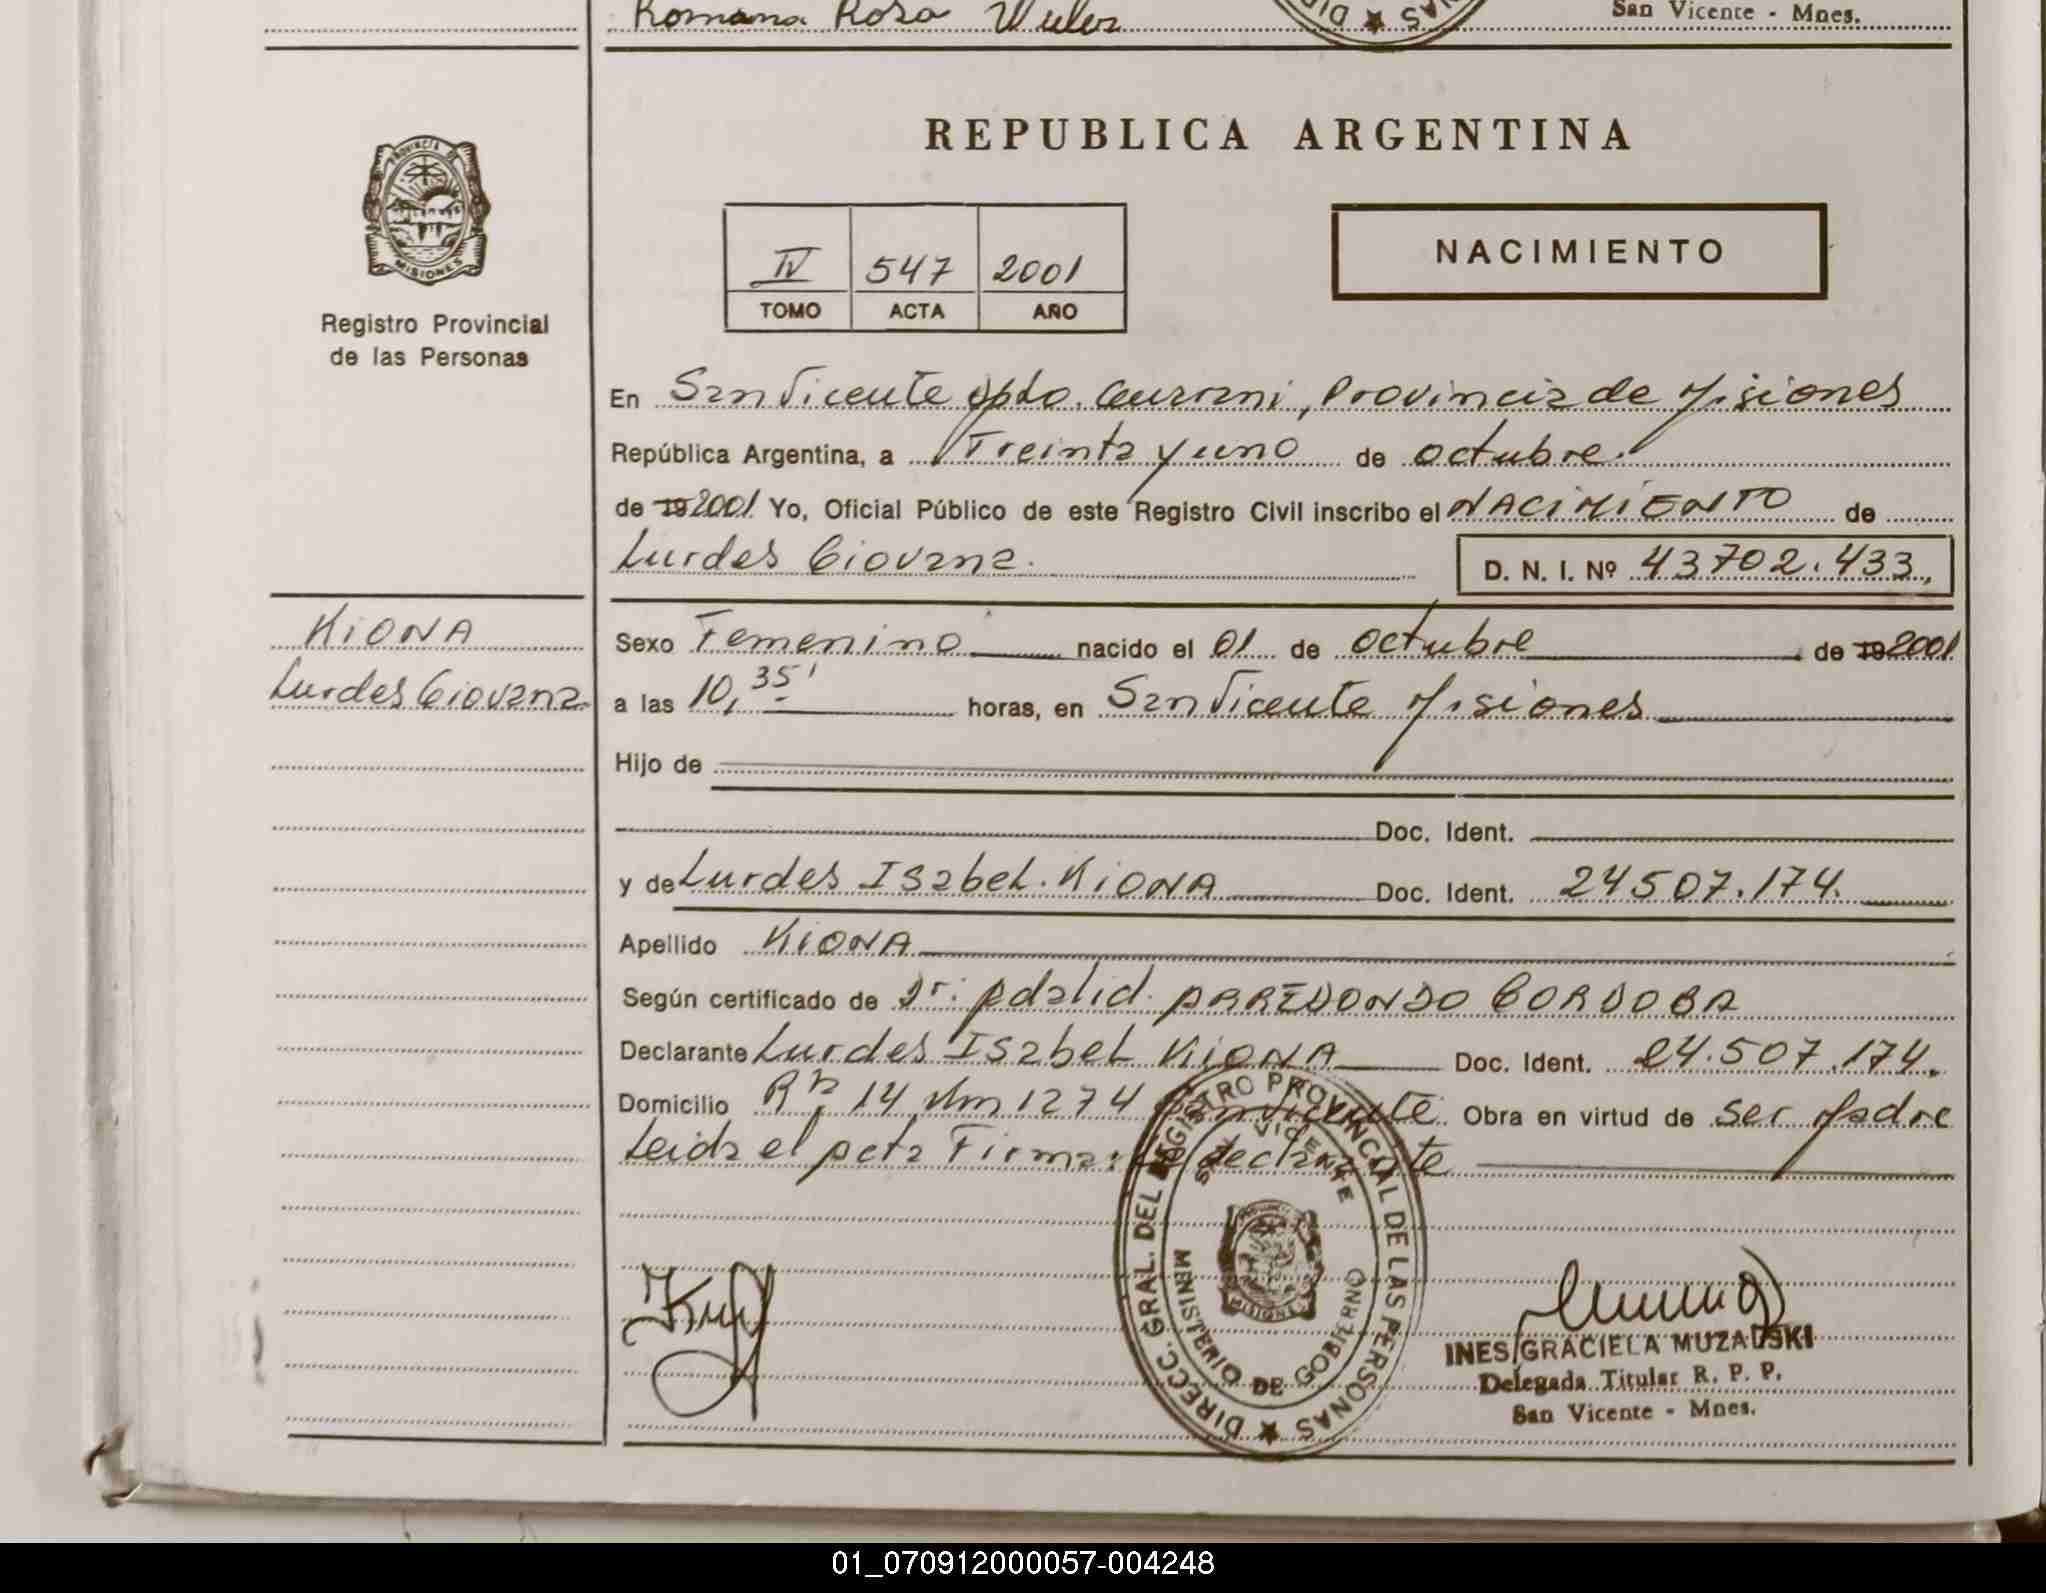 Romana Rosa
San Vicente - Mnes.
REPUBLICA ARGENTINA
PROVINCIA DE
MISIONES
Registro Provincial
de las Personas
IV 547 2001
TOMO ACTA AÑO
NACIMIENTO
En San Vicente Dpto. Guarani, Provincia de Misiones
República Argentina, a Treinta y uno de octubre
de 19 2001 Yo, Oficial Público de este Registro Civil inscribo el NACIMIENTO de
Lurdes Giovana. D. N. I. Nº 43702.433.
KIONA
Lurdes Giovana
Sexo Femenino nacido el 01 de octubre de 19 2001
a las 10,35' horas, en San Vicente Misiones
Hijo de
Doc. Ident.
y de Lurdes Isabel. KIONA Doc. Ident. 24507.174.
Apellido KIONA
Según certificado de Dr: Adalid. ARREDONDO CORDOBA
Declarante Lurdes Isabel KIONA Doc. Ident. 24.507.174.
Domicilio 14 Km 1274 San Vicente Obra en virtud de ser Madre
Leida el acta Firma: la declarante
DIRECC. GRAL. DEL REGISTRO PROVINCIAL DE LAS PERSONAS
SAN VICENTE
MINISTERIO DE GOBIERNO
MISIONES
INES GRACIELA MUZALSKI
Delegada Titular R. P. P.
San Vicente - Mnes.
01_070912000057-004248